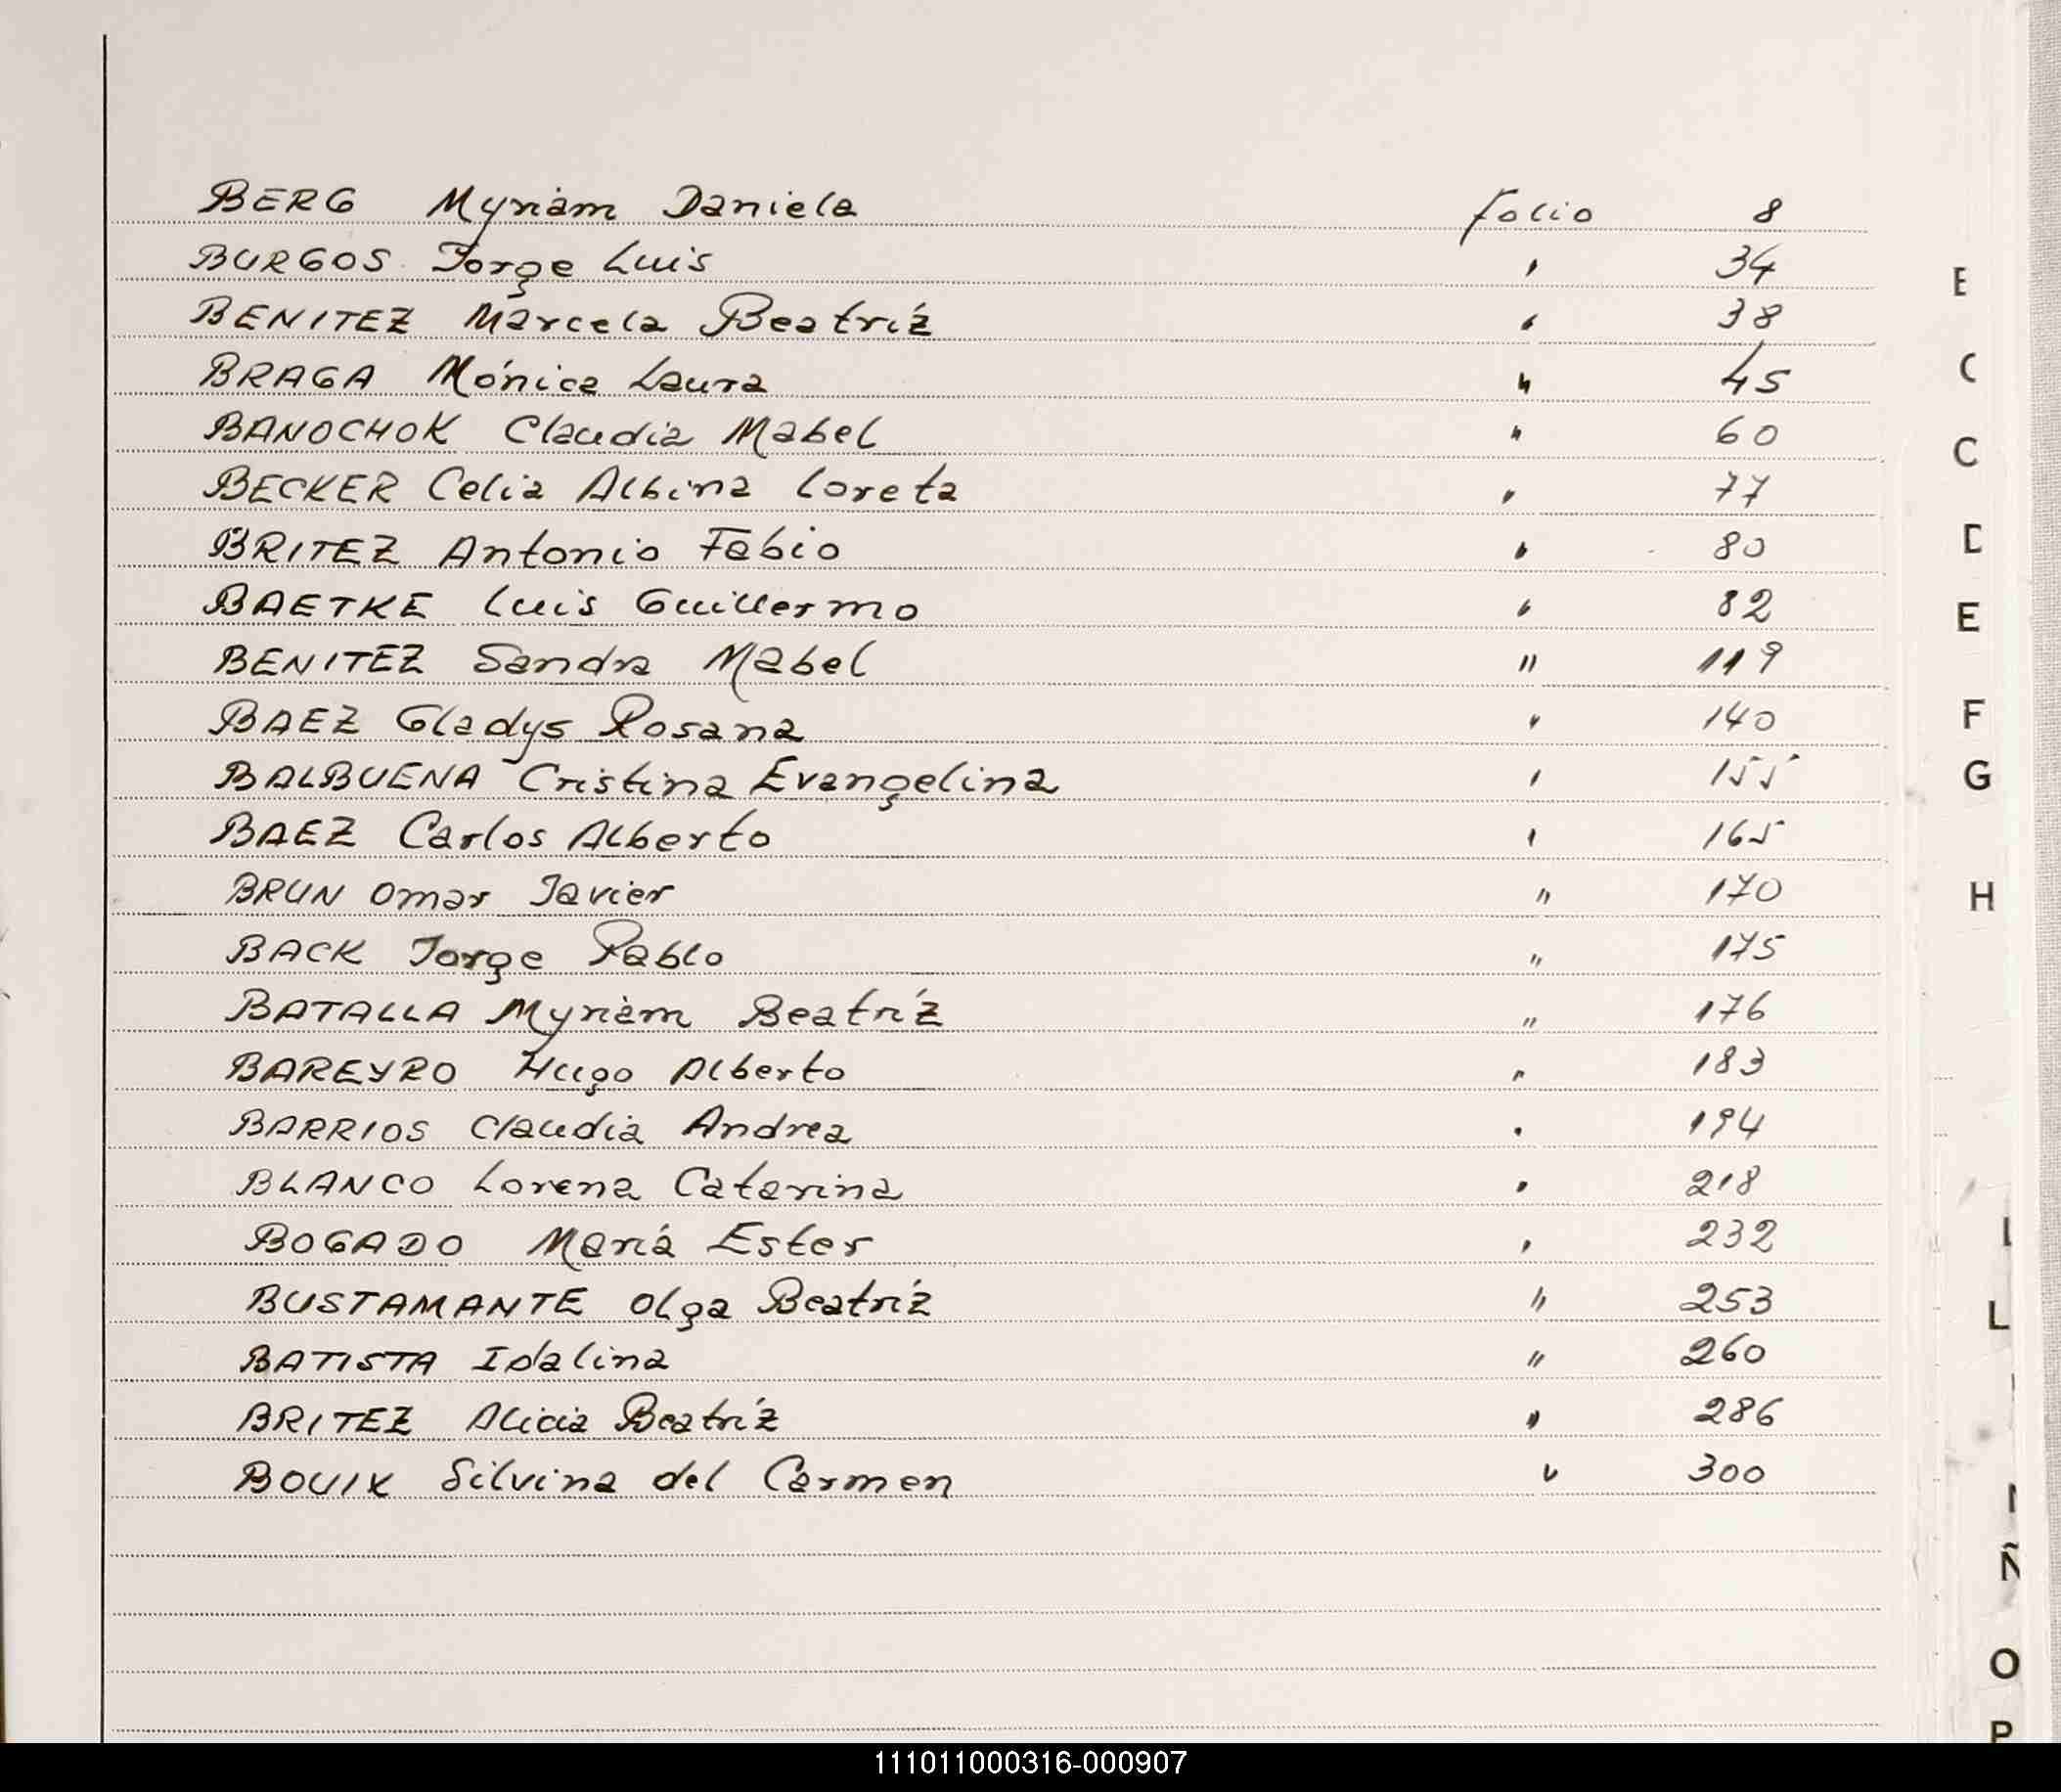 BERG Myriam Daniela Folio 8
BURGOS Jorge Luis " 34
BENITEZ Marcela Beatríz " 38
BRAGA Mónica Laura " 45
BANOCHOK Claudia Mabel " 60
BECKER Celia Albina Loreta " 77
BRITEZ Antonio Fabio " 80
BAETKE Luis Guillermo " 82
BENITEZ Sandra Mabel " 119
BAEZ Gladys Rosana " 140
BALBUENA Cristina Evangelina " 155
BAEZ Carlos Alberto " 165
BRUN Omar Javier " 170
BACK Jorge Pablo " 175
BATALLA Myriam Beatríz " 176
BAREYRO Hugo Alberto " 183
BARRIOS Claudia Andrea " 194
BLANCO Lorena Catarina " 218
BOGADO María Ester " 232
BUSTAMANTE Olga Beatríz " 253
BATISTA Idalina " 260
BRITEZ Alicia Beatríz " 286
BOUIX Silvina del Carmen " 300
C
E
F
G
H
L
Ñ
O
P
111011000316-000907